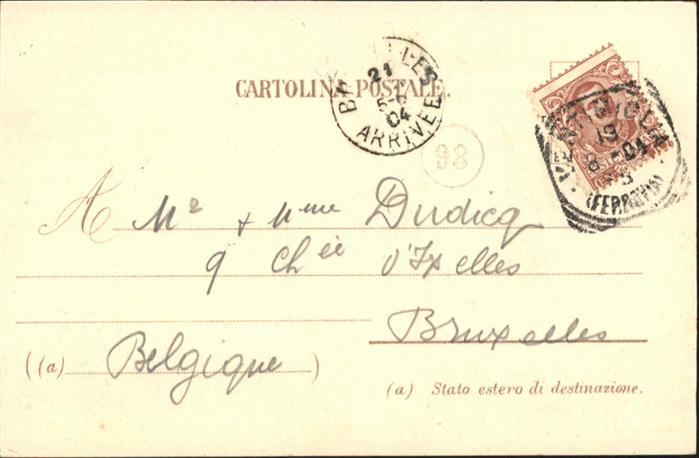 CARTOLINA POSTALE.
BRUXELLES
21
5-6
04
ARRIVÉE
98
VENTIMIGLIA
19
8-04
5
(FERROVIA)
A Mr + Mme Dudicq
9 Chée d'Ixelles
Bruxelles
((a) Belgique )
(a) Stato estero di destinazione.